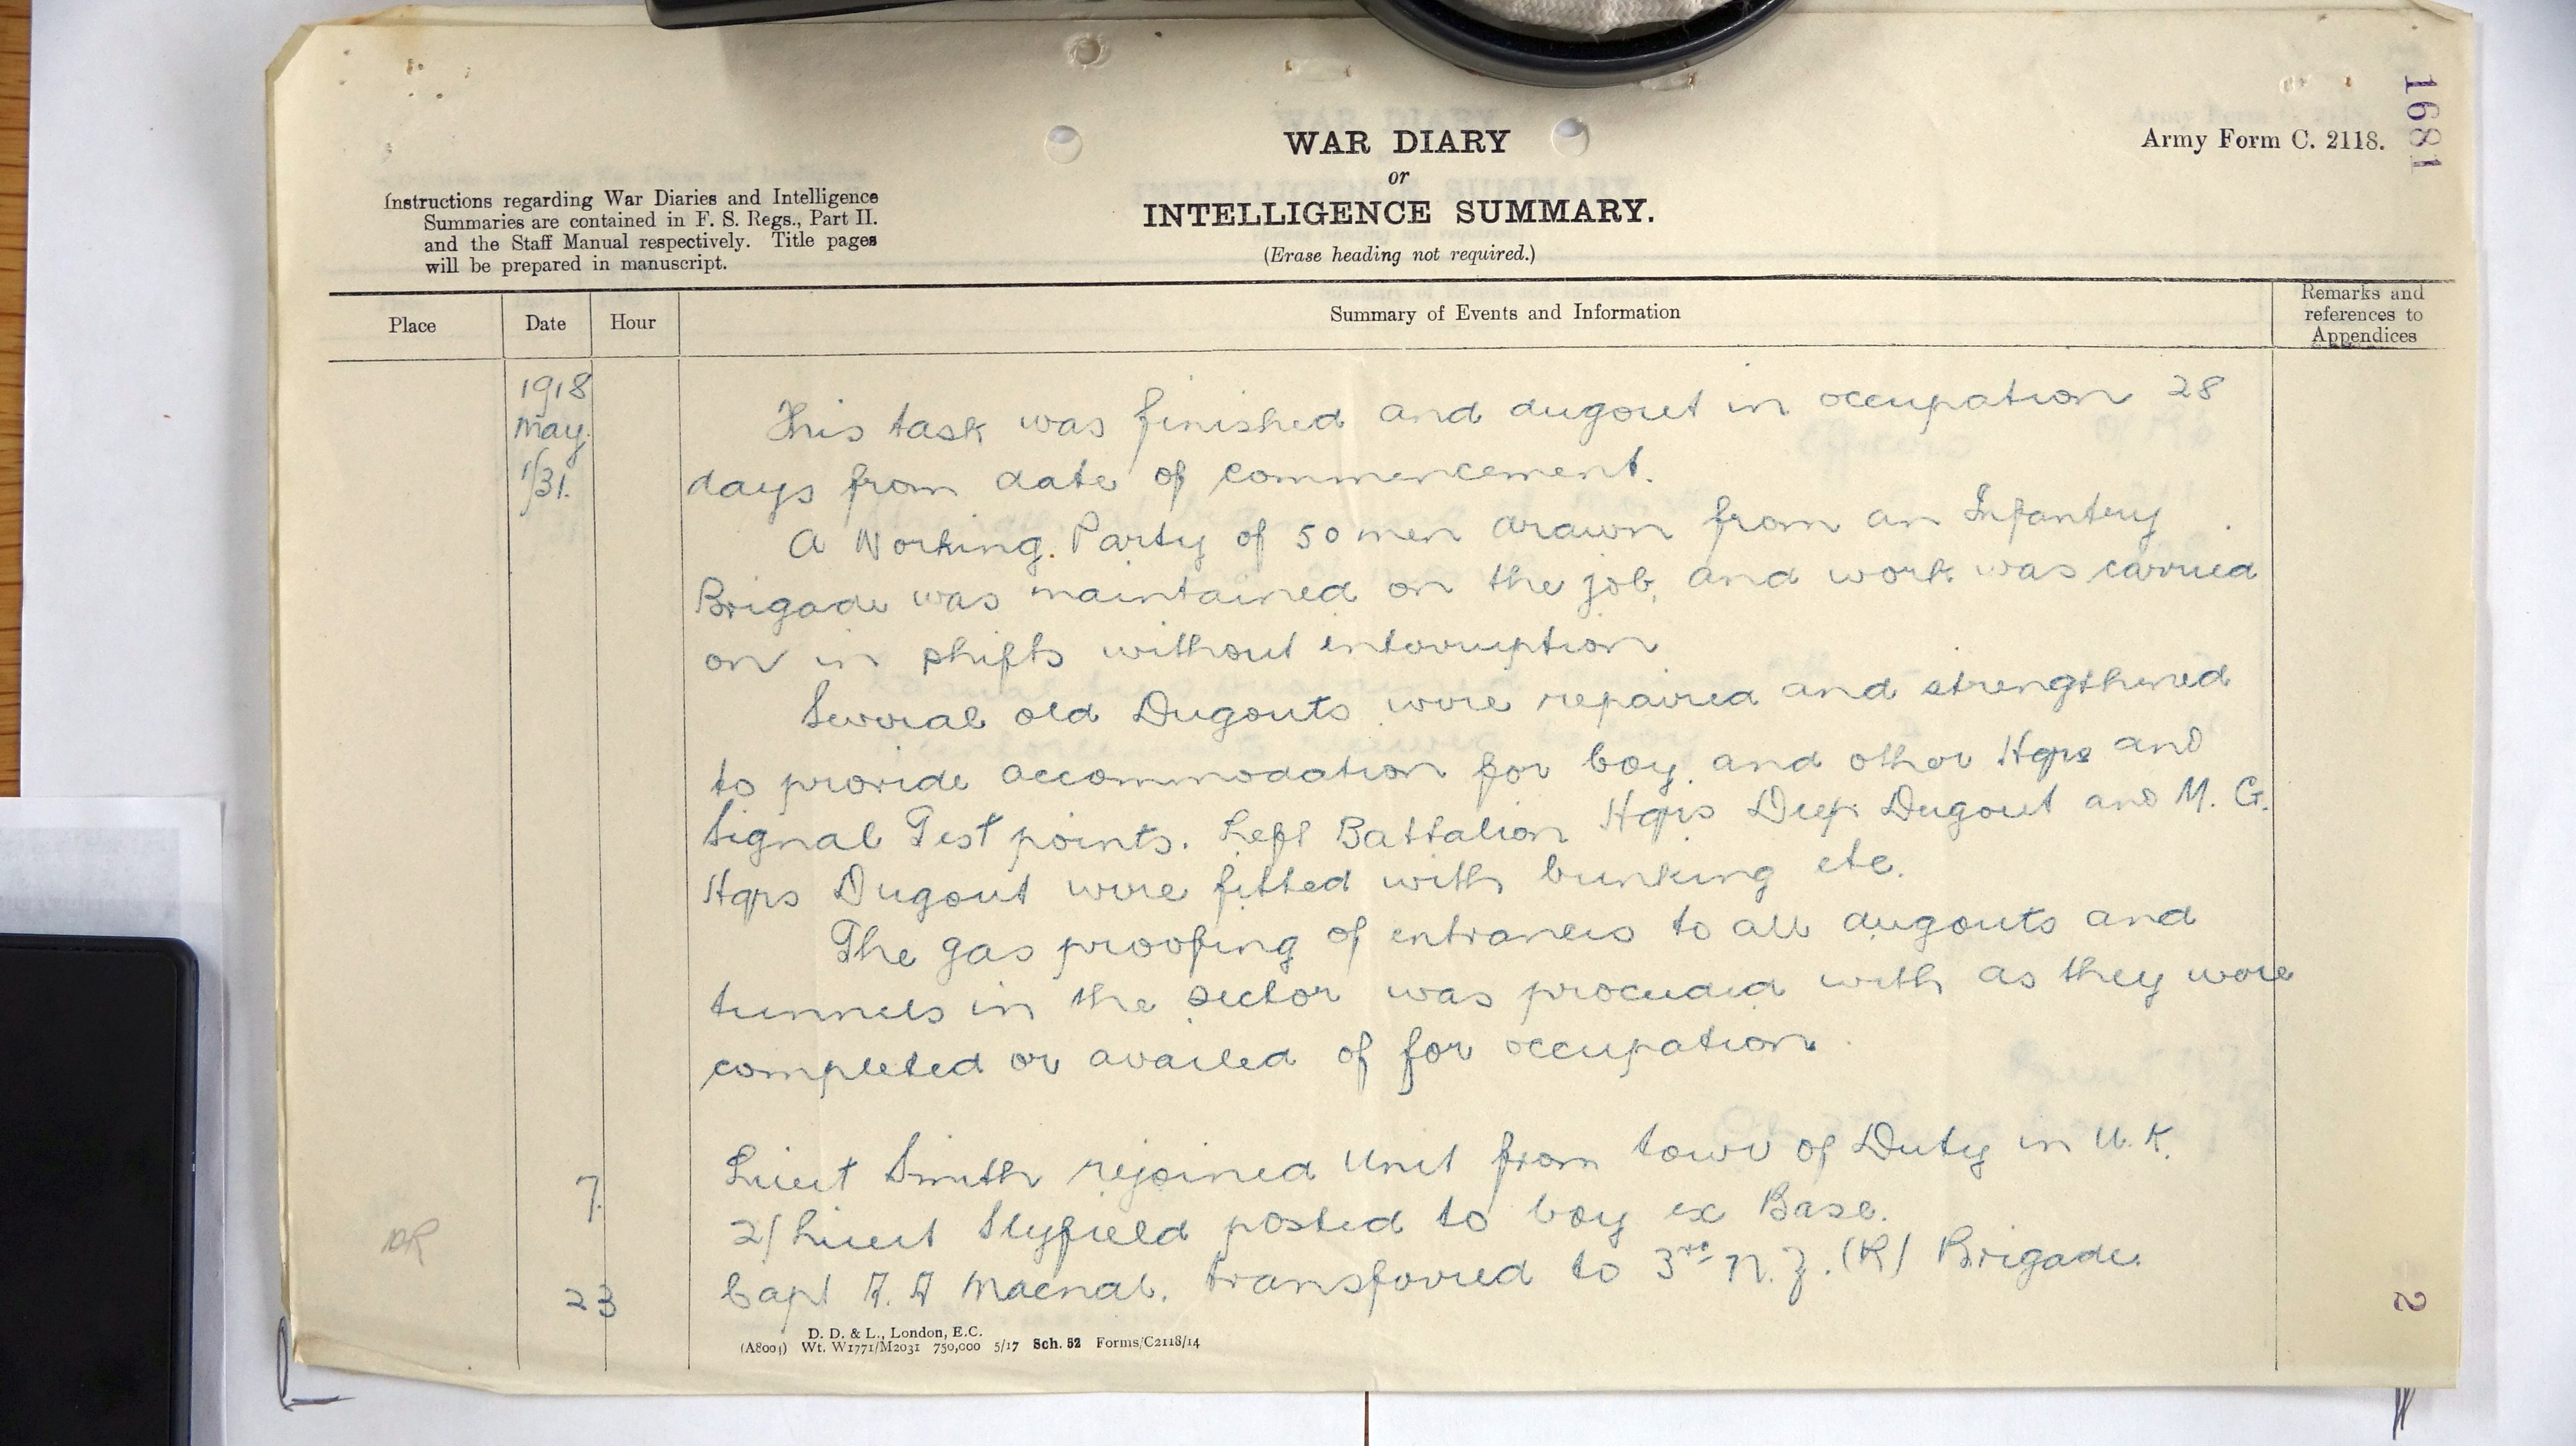 1681
Army Form C. 2118.
WAR DIARY
or
INTELLIGENCE SUMMARY.
(Erase heading not required.)
Instructions regarding War Diaries and Intelligence
Summaries are contained in F. S. Regs., Part II.
and the Staff Manual respectively. Title pages
will be prepared in manuscript.
Place Date Hour Summary of Events and Information Remarks and references to Appendices
1918
May.
1/31.
This task was finished and dugout in occupation 28
days from date of commencement.
A Working. Party of 50 men drawn from an Infantry
Brigade was maintained on the job, and work was carried
on in shifts without interruption
Several old Dugouts were repaired and strengthened
to provide accommodation for Coy. and other Hqrs and
Signal Test points. Left Battalion Hqrs Deep Dugout and M. G.
Hqrs Dugout were fitted with bunking etc.
The gas proofing of entrances to all dugouts and
tunnels in the sector was proceeded with as they were
completed or availed of for occupation.
7. Lieut Smith rejoined Unit from tour of Duty in U.K.
2/Lieut Slyfield posted to Coy ex Base.
23 Capt Macnab. transferred to 3rd N.Z. (R) Brigade.
2
D. D. & L., London, E.C.
(A8004) Wt. W1771/M2031 750,000 5/17 Sch. 52 Forms/C2118/14